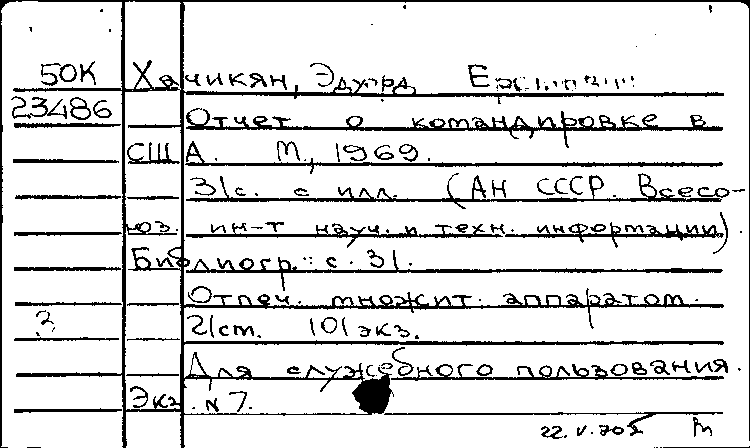 50К Хачикян, Эдуард
23486 Отчет о командировке в
США. М., 1969.
31с. с илл. (АН СССР. Всесо-
юз. ин-т науч. и техн. информации).
Библиогр.: с. 31.
Отпеч. множит. аппаратом.
3 21см. 101экз.
Для служебного пользования.
Экз. № 7.
22.V.70г.